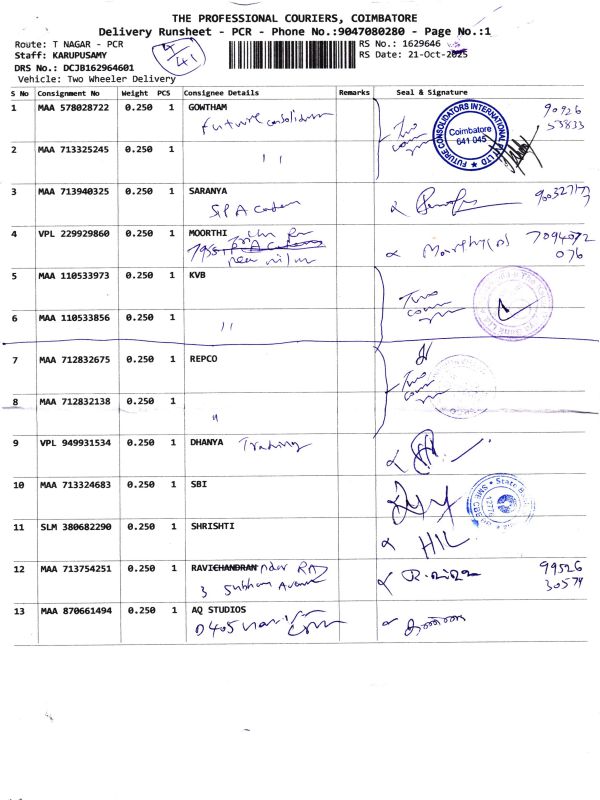 THE PROFESSIONAL COURIERS, COIMBATORE
Delivery Runsheet - PCR - Phone No.:9047080280 - Page No.:1
Route: T NAGAR - PCR
RS No.: 1629646
Staff: KARUPUSAMY
RS Date: 21-Oct-2025
DRS No.: DCJB162964601
Vehicle: Two Wheeler Delivery
4/41
S No Consignment No Weight PCS Consignee Details Remarks Seal & Signature
1 MAA 578028722 0.250 1 GOWTHAM
Future consolidum
Two
FUTURE CONSOLIDATORS INTERNATIONAL PVT LTD
Coimbatore
641 045
90926
53833
2 MAA 713325245 0.250 1
''
3 MAA 713940325 0.250 1 SARANYA
4 VPL 229929860 0.250 1 MOORTHI
Moorthy(D) 7094072
076
5 MAA 110533973 0.250 1 KVB
Two
6 MAA 110533856 0.250 1
''
7 MAA 712832675 0.250 1 REPCO
Two
8 MAA 712832138 0.250 1
"
9 VPL 949931534 0.250 1 DHANYA Trading
10 MAA 713324683 0.250 1 SBI
State B
11 SLM 380682290 0.250 1 SHRISHTI
HIL
12 MAA 713754251 0.250 1 RAVICHANDRAN
3 Subham Avenue
99526
30579
13 MAA 870661494 0.250 1 AQ STUDIOS
D405